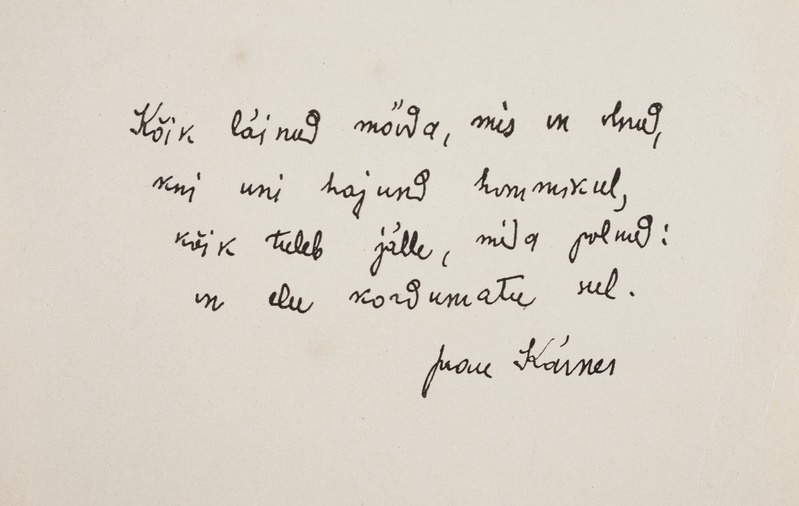 Kõik läinud mööda, mis on olnud,
kui uni hajund hommikul,
kõik tuleb jälle, mida polnud:
on elu kordumatu sul.
Jaan Kärner